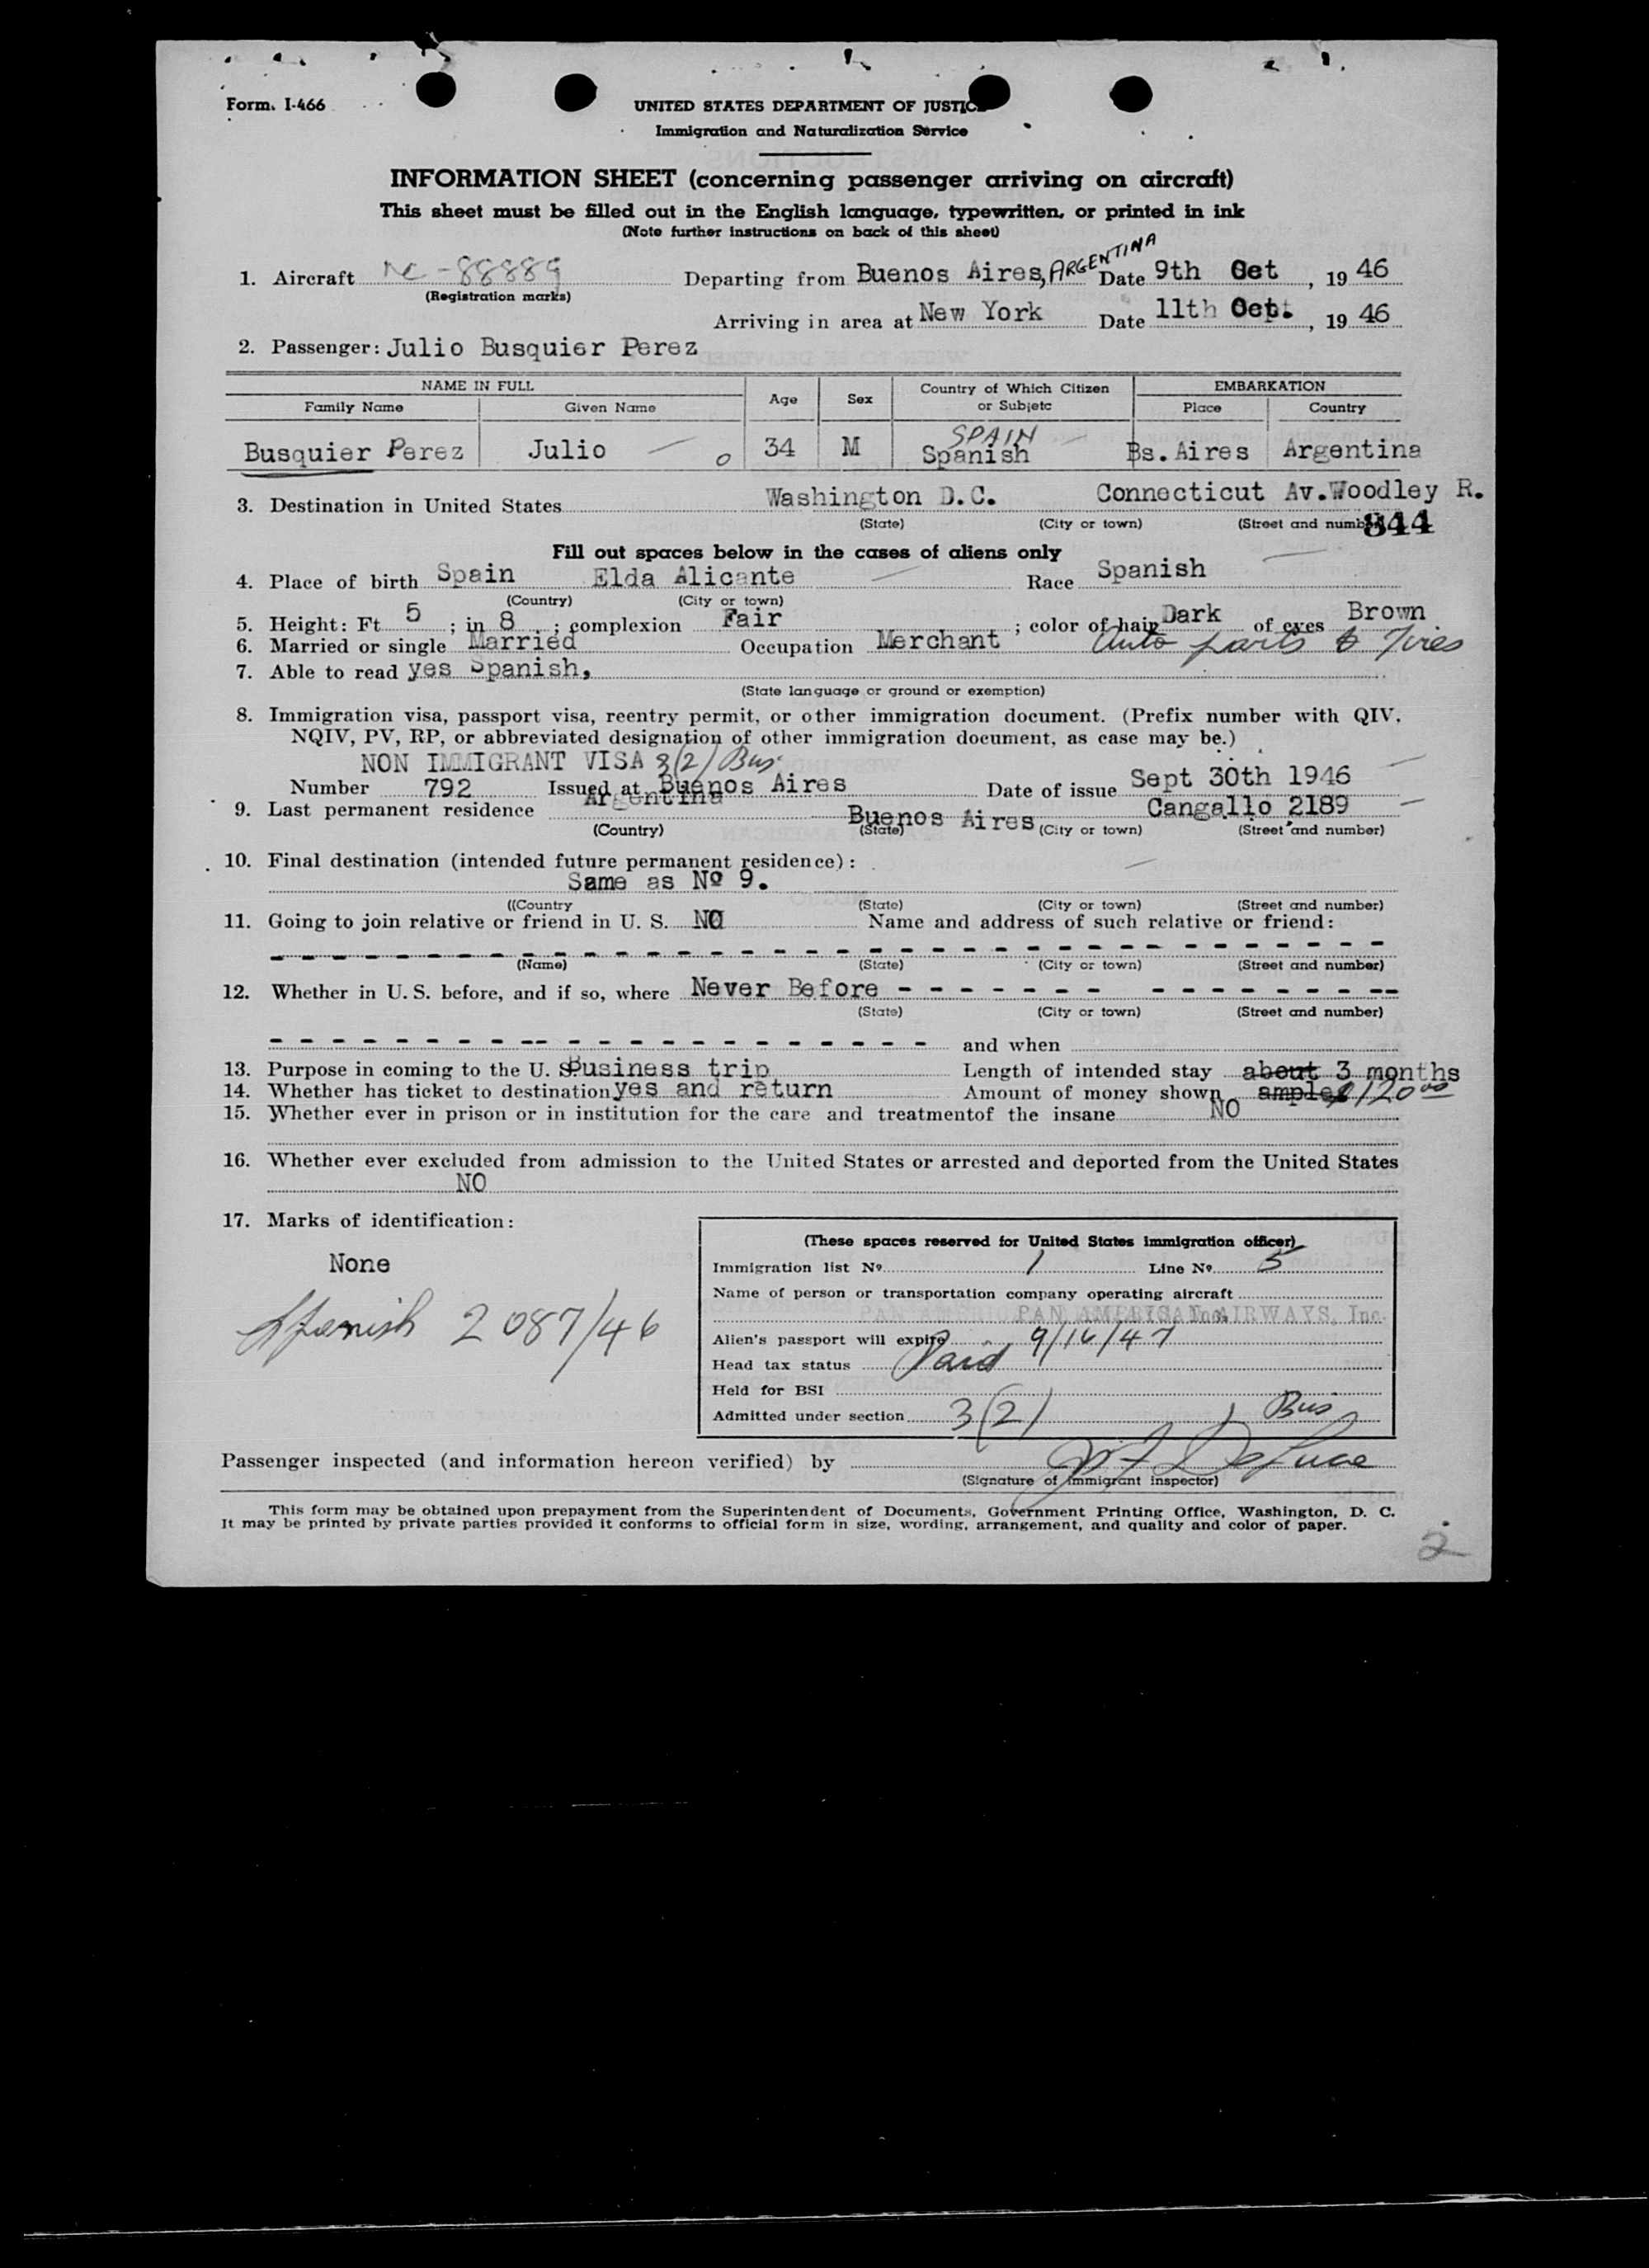 Form. I-466
UNITED STATES DEPARTMENT OF JUSTICE
Immigration and Naturalization Service
INFORMATION SHEET (concerning passenger arriving on aircraft)
This sheet must be filled out in the English language, typewritten, or printed in ink
(Note further instructions on back of this sheet)
1. Aircraft NC-88889 Departing from Buenos Aires, ARGENTINA Date 9th Oct , 19 46
(Registration marks)
Arriving in area at New York Date 11th Oct. , 19 46
2. Passenger: Julio Busquier Perez
NAME IN FULL Age Sex Country of Which Citizen or Subjetc EMBARKATION
Family Name Given Name Place Country
SPAIN
Busquier Perez Julio 34 M Spanish Bs.Aires Argentina
3. Destination in United States Washington D.C. Connecticut Av.Woodley R.
(State) (City or town) (Street and number) 844
Fill out spaces below in the cases of aliens only
4. Place of birth Spain Elda Alicante Race Spanish
(Country) (City or town)
5. Height: Ft 5 ; in 8 ; complexion Fair ; color of hair Dark of eyes Brown
6. Married or single Married Occupation Merchant Auto parts & Tires
7. Able to read yes Spanish,
(State language or ground or exemption)
8. Immigration visa, passport visa, reentry permit, or other immigration document. (Prefix number with QIV,
NQIV, PV, RP, or abbreviated designation of other immigration document, as case may be.)
NON IMMIGRANT VISA 3(2) Bus
Number 792 Issued at Buenos Aires Date of issue Sept 30th 1946
9. Last permanent residence Argentina Buenos Aires Cangallo 2189
(Country) (State) (City or town) (Street and number)
10. Final destination (intended future permanent residence):
Same as Nº 9.
((Country (State) (City or town) (Street and number)
11. Going to join relative or friend in U. S. NO Name and address of such relative or friend:
(Name) (State) (City or town) (Street and number)
12. Whether in U. S. before, and if so, where Never Before - - - - - - - - - - - - - - -
(State) (City or town) (Street and number)
- - - - - - - - - - - - - - - - - - - - - and when
13. Purpose in coming to the U. S. Business trip Length of intended stay about 3 months
14. Whether has ticket to destination yes and return Amount of money shown ample $120.00
15. Whether ever in prison or in institution for the care and treatmentof the insane NO
16. Whether ever excluded from admission to the United States or arrested and deported from the United States
NO
17. Marks of identification:
None
Spanish 2087/46
(These spaces reserved for United States immigration officer)
Immigration list Nº 1 Line Nº 5
Name of person or transportation company operating aircraft
PAN AMERICAN AIRWAYS, Inc.
Alien's passport will expire 9/16/47
Head tax status Paid
Held for BSI
Admitted under section 3(2) Bus
Passenger inspected (and information hereon verified) by
(Signature of immigrant inspector)
This form may be obtained upon prepayment from the Superintendent of Documents, Government Printing Office, Washington, D. C.
It may be printed by private parties provided it conforms to official form in size, wording, arrangement, and quality and color of paper.
2